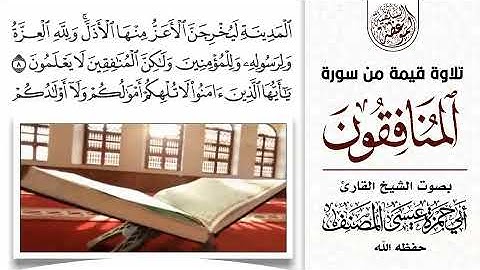 ٱلْمَدِينَةِ لَيُخْرِجَنَّ ٱلْأَعَزُّ مِنْهَا ٱلْأَذَلَّ ۚ وَلِلَّهِ ٱلْعِزَّةُ
وَلِرَسُولِهِۦ وَلِلْمُؤْمِنِينَ وَلَٰكِنَّ ٱلْمُنَٰفِقِينَ لَا يَعْلَمُونَ ٨
يَٰٓأَيُّهَا ٱلَّذِينَ ءَامَنُوا۟ لَا تُلْهِكُمْ أَمْوَٰلُكُمْ وَلَآ أَوْلَٰدُكُمْ
تلاوة قيمة من سورة
ٱلْمُنَافِقُونَ
بصوت الشيخ القارئ
أبي حمزة عيسى المصنف
حفظه الله